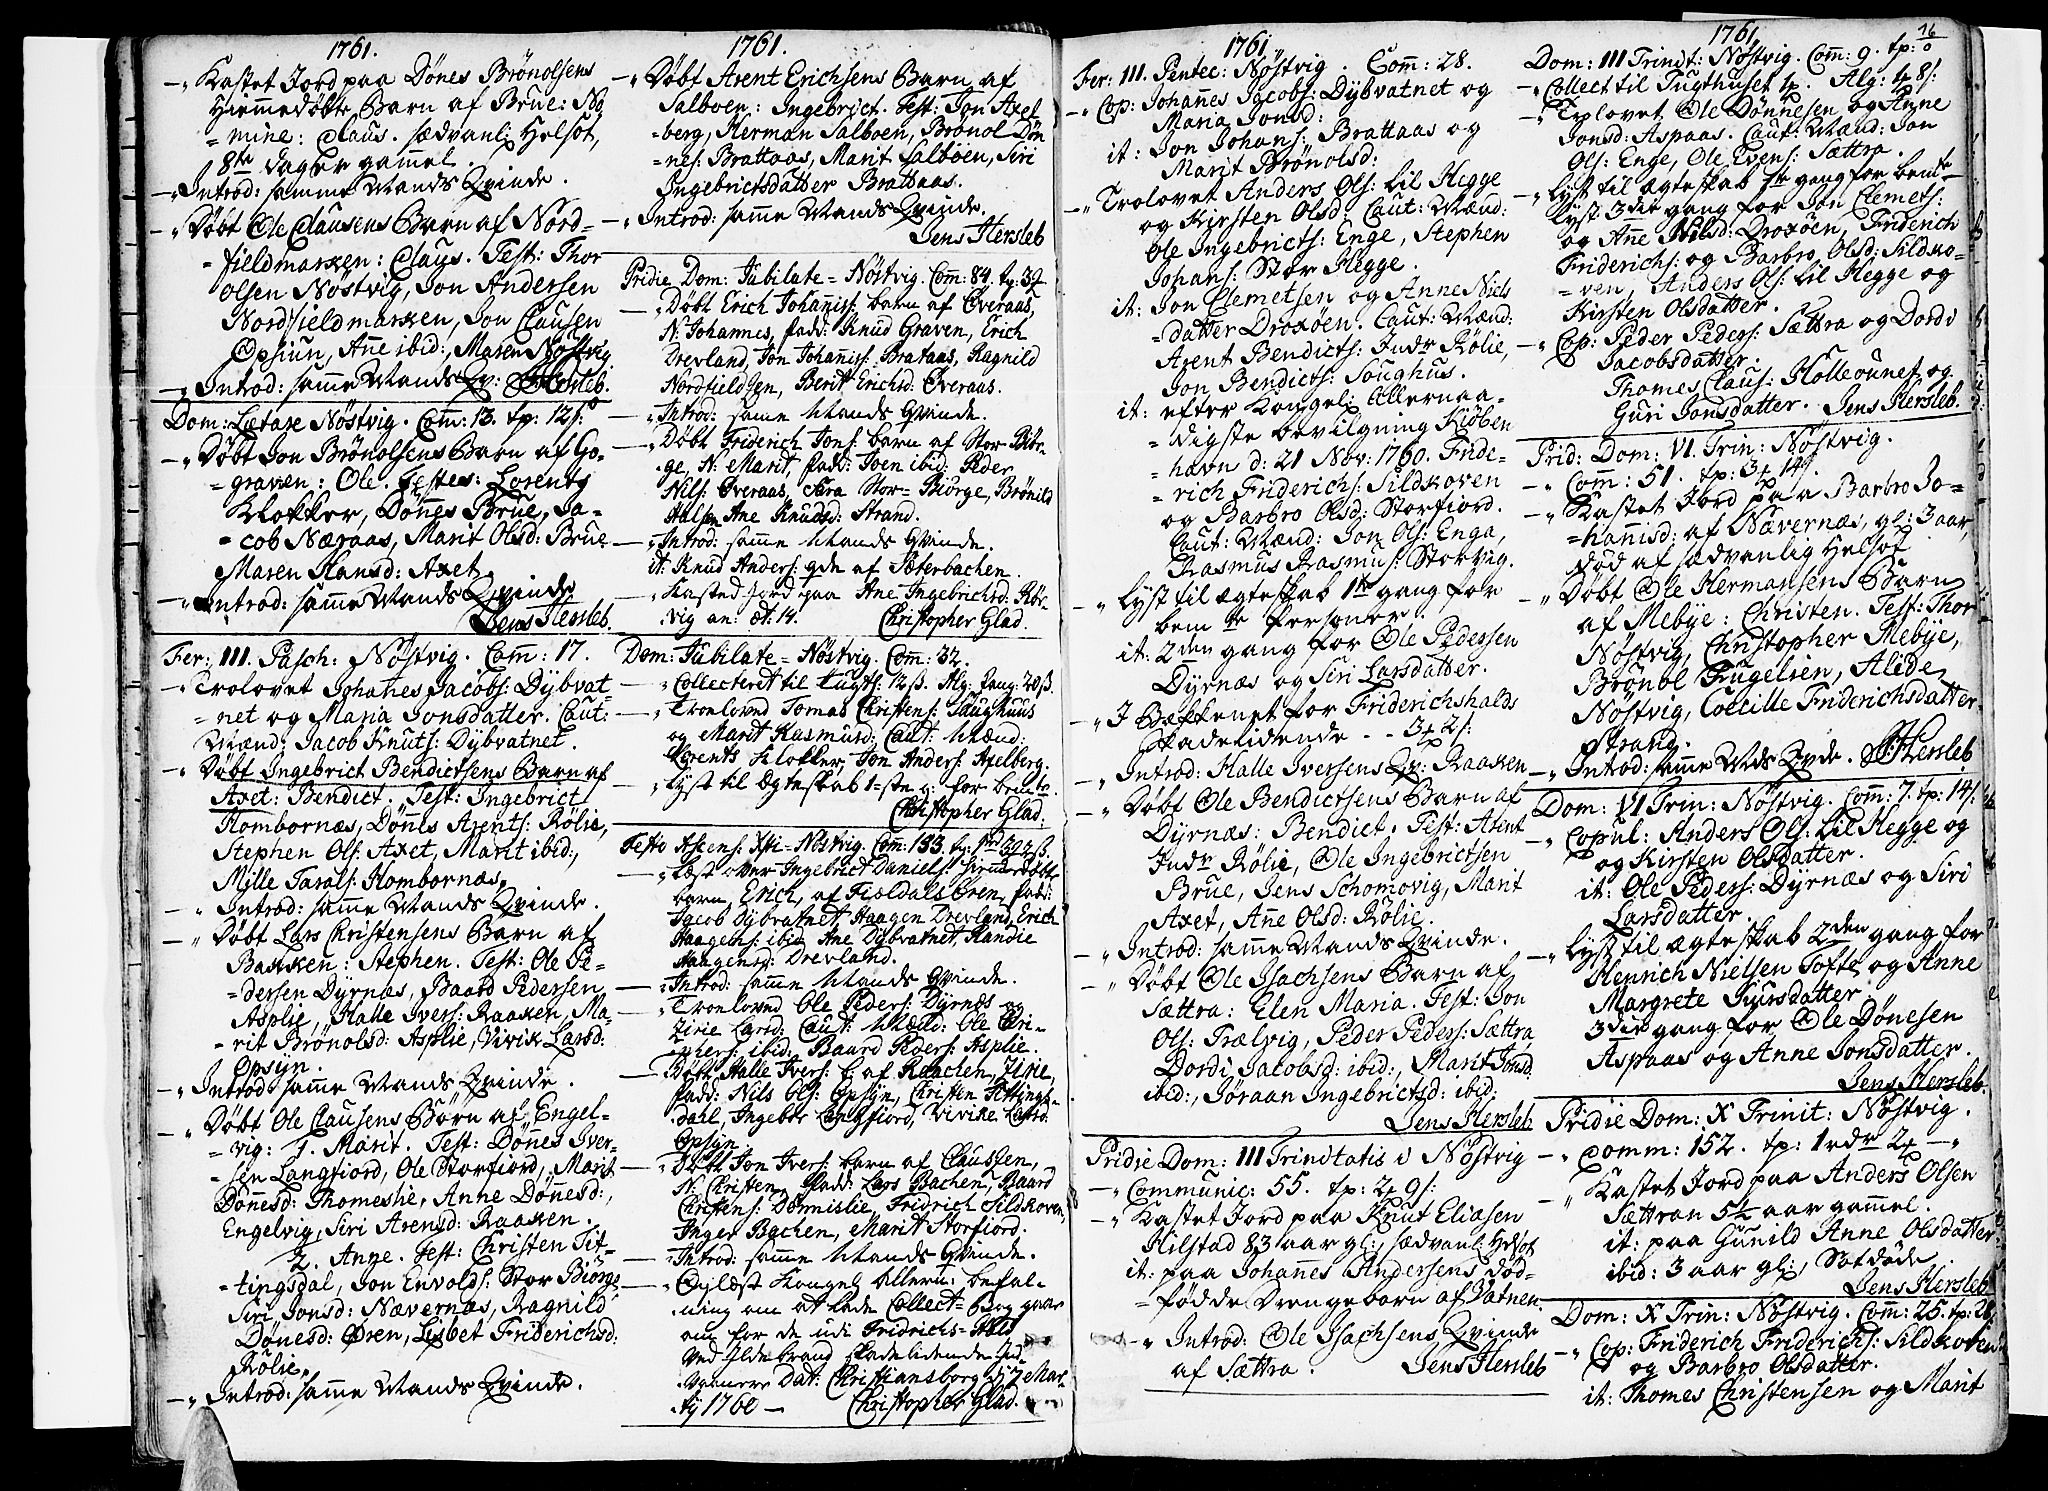 1761.
—„ Kastet Jord paa Dönes Brönolsens
Hiemmedöbte Barn af Brue: No
= mine: Claus. sædvanl: Helsot,
8te dager gammel.
—„ Introd: samme Mands Qvinde.
—„ Döbt Ole Clausens Barn af Nord=
= fieldmarken: Claus. Test: Thor
Olsen Nöstvig, Jon Andersen
Nordfieldmarken, Jon Clausen
Opsiun, Añe ibid:, Maren Nöstvig
—„ Introd: samme Mands Qv: JHersleb.
Dom: Lætare Nöstvig. Com̃: 13. tp: 12 s:
—„ Döbt Jon Brönolsens Barn af Go=
= graven: Ole. Testes: Lorentz
Klokker, Dönnes Brue, Ja=
= cob Næraas, Marit Olsd: Brue
Maren Hansd: Axet.
—„ Introd: samme Mands Qvinde
Jens Hersleb.
Fer: III. Pasch: Nöstvig. Com̃: 17.
—„ Trolovet Johañes Jacobs: Dybvat=
= net og Maria Jonsdatter. Caut:
Mænd: Jacob Knuts: Dybvatnet.
—„ Döbt Ingebrict Bendictsens Barn af
Axet: Bendict. Test: Ingebrict
Hombornæs, Dönnes Arents: Rölie,
Stephen Ols: Axet, Marit ibid:,
Mille Tarals: Hombornæs.
—„ Introd: samme Mands Qvinde.
—„ Döbt Lars Christensens Barn af
Bakken: Stephen. Test: Ole Pe=
= dersen Dyrnæs, Baard Pedersen
Asplie, Halle Ivers: Raaken, Ma=
= rit Brönolsd: Asplie, Vivik Larsd:
Opsyn.
—„ Introd: samme Mands Qvinde.
—„ Döbt Ole Clausens Börn af Engel=
= vig: 1. Marit. Test: Dönnes Iver=
= sen Langfiord, Ole Storfiord, Marit
Dönnesd: Thomeslie, Anne Dönnesd:,
Engelvig, Siri Arensd: Raaken.
2. Anne. Test: Christen Tit=
= tingsdal, Jon Envolds: Stor Biörge
Siri Jonsd: Nævernæs, Ragnild
Dönesd: Øren, Lisbet Friderichsd:
Rölie.
—„ Introd: samme Mands Qvinde.
1761.
—„ Döbt Arent Erichsens Barn af
Salboen: Ingebrict. Test: Jon Axel=
= berg, Herman Salboen, Brönol Dön=
= nes: Brattaas, Marit Salböen, Siri
Ingebrictsdatter Brattaas.
—„ Introd: samme Mands Qvinde.
Jens Hersleb
Pridie Dom: Jubilate = Nöstvig. Com̃: 84. tp: 3
—„ Döbt Erich Johañis: barn af Overaas,
N: Johannes, fadd: Knud Graven, Erich
Drevland, Jon Johañis: Brataas, Ragnild
Nordfield, Berit Erichsd: Overaas.
—„ Introd: samme Mands Qvinde.
—„ Döbt Friderich Jons: barn af Stor-Biör=
ge, N: Marit, fadd: Joen ibid: Peder
Nils: Overaas, Sara Stor=Biörge, Brönild
Ane Knudsd: Strand.
—„ Introd: samme Mands Qvinde.
it: Knud Anders: qde af Sæterbachen.
—„ Kasted Jord paa Ane Ingebrichsd: Rör=
vig an: æt: 14. Christopher Glad.
Dom: Jubilate = Nöstvig. Com̃: 32.
—„ Collecteret til Tugts: 12 ß. Alg: pung: 20 ß.
—„ Troeloved Tomas Christens: Saughuus
og Marit Rasmusd: Caut: Mænd:
Lorents Klokker, Jon Anders: Axelberg.
—„ Lyst til Ægteskab 1=ste g: for bem̃te.
Christopher Glad.
Festo Ascens: Xsti=Nöstvig. Com̃: 133. tp:
—„ Læst over Ingebrict Daniels: hiemedöbte
barn, Erich, af Fieldals Øren, fadd:
Jacob Dybvatnet, Haagen Drevland, Erich
Haagens: ibid, Ane Dybvatnet, Randie
Haagensd: Drevland.
—„ Introd: samme Mands Qvinde.
—„ Troeloved Ole Peders: Dyrnæs og
Zirie Larsd: Caut: Mænd: Ole Chri=
ibid: Baard Peders: Asplie.
—„ Döbt Halle Ivers: b. af Raachen, Zirie,
fadd: Nils Ols: Opsyn, Christen Tittings=
dahl, Ingebor Langfiord, Vivike Larsd:
Opsyn.
—„ Döbt Jon Ivers: barn af Clausjen,
N: Christen, fadd: Lars Bachen, Baard
Christens: Dönnislie, Fridrich Sildkoven,
Inger Bachen, Marit Storfiord.
—„ Introd: samme Mands Qvinde.
—„ Oplæst Kongel: Allern: befal=
ning om at lade Collect=Bog gaae
om for de udi Fridrichs=Hald
ved Ildebrand skadelidende Ind=
vaanere Dat: Christiansborg d: 7 Mar=
tij 1760 — Christopher Glad.
1761
Fer: III. Pentec: Nöstvig. Com̃: 28.
—„ Cop: Johannes Jacobs: Dybvatnet og
Maria Jonsd:
it: Jon Johans: Brattaas og
Marit Brönolsd:
—„ Trolovet Anders Ols: lil Hegge
og Kirsten Olsd: Caut: Mænd:
Ole Ingebricts: Enge, Stephen
Johans: Stor Hegge.
it: Jon Clemetsen og Anne Niels
= datter Droxöen. Caut: Mænd:
Arent Bendicts: Indr Rölie,
Jon Bendicts: Soughus.
it: efter Kongel: Allernaa=
= digste bevilgning Kiöben
= havn d: 21 Nov: 1760. Fride=
= rich Friderichs: Sildkoven
og Barbro Olsd: Storfiord.
Caut: Mænd: Jon Ols: Enga,
Rasmus Rasmus: Storvig.
—„ Lyst til ægteskab 1ste gang for
bem̃te Personer.
it: 2den gang for Ole Pedersen
Dyrnæs og Siri Larsdatter.
—„ I Bækkenet for Friderichshalds
Skadelidende - - 3 2 s:
—„ Introd: Halle Iversens Qv: Raaken
—„ Döbt Ole Bendictsens Barn af
Dyrnæs: Bendict. Test: Arent
Indr Rölie, Ole Ingebrictsen
Brue, Jens Schomovig, Marit
Axet, Añe Olsd: Rölie.
—„ Introd: samme Mands Qvinde.
—„ Döbt Ole Isachsens Barn af
Sættra: Elen Maria. Test: Jon
Ols: Trælvig, Peder Peders: Sættra,
Dordi Jacobsd: ibid:, Marit Jonsd:
ibid:, Jöraan Ingebrictsd: ibid:
Jens Hersleb
Pridie Dom: III Trinitatis i Nöstvig
—„ Communic: 55. tp: 2 9 s:
—„ Kastet Jord paa Knut Eliasen
Hilstad 83 aar gl:, sædvanl: Helsot
it: paa Johannes Andersens död=
= födde Drengebarn af Vatnen.
—„ Introd: Ole Isachsens Qvinde
af Sættra. Jens Hersleb
1761. 16
Dom: III Trinit: Nöstvig. Com̃: 9. tp: 0
—„ Collect til Tugthuset 4. Alg: 4 8 s:
—„ Trolovet Ole Dönnesen og Añe
Jonsd: Aspaas. Caut: Mænd: Jon
Ols: Enge, Ole Evens: Sættra.
—„ Lyst til ægteskab 1te gang for bem̃te
Lyst 3die gang for Jon Clemets:
og Añe Nilsd: Droxöen, Friderich
Friderichs: og Barbro Olsd: Sildko=
= ven, Anders Ols: lil Hegge og
Kirsten Olsdatter.
—„ Cop: Peder Peders: Sættra og Dordi
Jacobsdatter.
Thomes Claus: Holleounet og
Guri Jonsdatter. Jens Hersleb.
Prid: Dom: VI. Trin: Nöstvig.
—„ Com̃: 51. tp: 3 14 s.
—„ Kastet Jord paa Barbro Jo=
= hannisd: af Nævernæs, gl: 3 aar,
död af sædvanlig Helsot
—„ Döbt Ole Hermansens Barn
af Mebye: Christen. Test: Thor
Nöstvig, Christopher Mebye,
Brönol Engelsen, Alide
Nöstvig, Coecille Friderichsdatter
Strand.
—„ Introd: samme Mds Qvde. JHersleb
Dom: VI Trin: Nöstvig. Com̃: 7. tp: 14 s:
—„ Copul: Anders Ols: lil Hegge og
og Kirsten Olsdatter.
it: Ole Peders: Dyrnæs og Siri
Larsdatter.
—„ Lyst til ægteskab 2den gang for
Henrich Nielsen Tofte og Anne
Margrete Siursdatter.
3die gang for Ole Dönesen
Aspaas og Anne Jonsdatter.
Jens Hersleb.
Pridie Dom: X Trinit: Nöstvig.
—„ Comm: 152. tp: 1 rdr 2 —„
—„ Kastet Jord paa Anders Olsen
Sættran 5½ aar gammel.
it: paa Gunild Anne Olsdatter
ibid: 3 aar gl:, Sotdöde.
Jens Hersleb
Dom: X Trin: Nöstvig. Com̃: 25. tp: 28
—„ Cop: Friderich Friderichs: Sildkoven
og Barbro Olsdatter.
it: Thomes Christensen og Marit